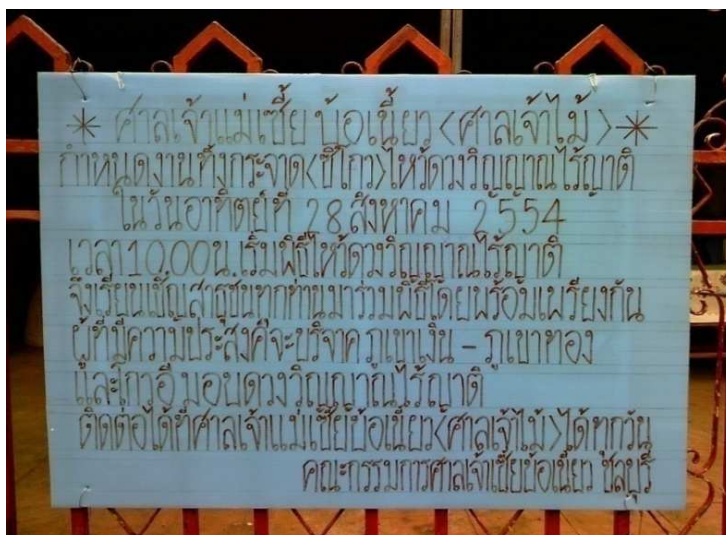 * ศาลเจ้าแม่เซี้ย บ้อเนี้ยว <ศาลเจ้าไม้> *
กำหนดงานทิ้งกระจาด<ซิโกว>ไหว้ดวงวิญญาณไร้ญาติ
ในวันอาทิตย์ที่ 28 สิงหาคม 2554
เวลา10.00น.เริ่มพิธีไหว้ดวงวิญญาณไร้ญาติ
จึงเรียนเชิญสาธุชนทุกท่านมาร่วมพิธีโดยพร้อมเพรียงกัน
ผู้ที่มีความประสงค์จะบริจาค ภูเขาเงิน - ภูเขาทอง
และโกวอี มอบดวงวิญญาณไร้ญาติ
ติดต่อได้ที่ศาลเจ้าแม่เซี้ยบ้อเนี้ยว<ศาลเจ้าไม้>ได้ทุกวัน
คณะกรรมการศาลเจ้าเซี้ยบ้อเนี้ยว ชลบุรี